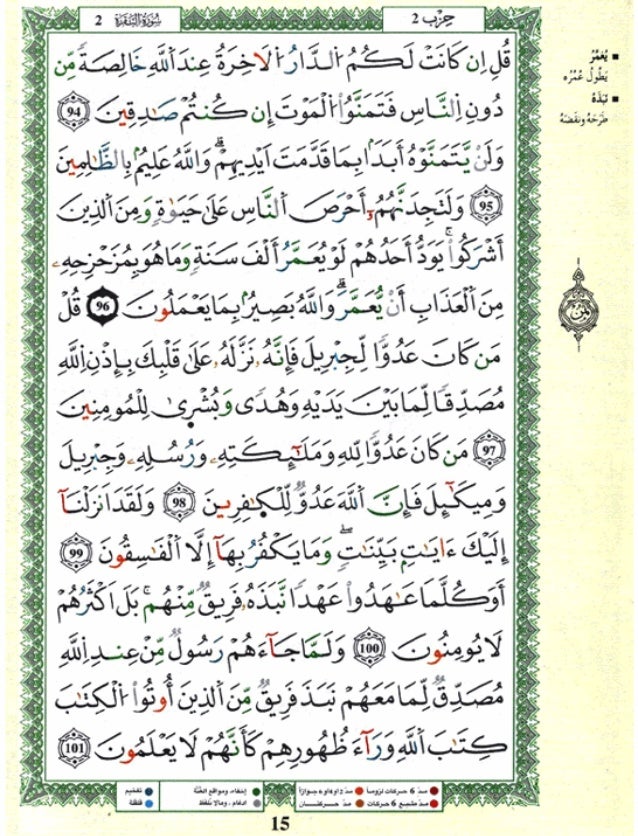 سُورَةُ البَقَرَة 2
حِزْب 2
قُلِ اِن كَانَتْ لَكُمُ اُ۬لدَّارُ اُ۬لَاخِرَةُ عِندَ اَ۬للَّهِ خَالِصَةٗ مِّن
دُونِ اِ۬لنَّاسِ فَتَمَنَّوُاْ اُ۬لْمَوْتَ إِن كُنتُمْ صَٰدِقِينَ 94
وَلَنْ يَّتَمَنَّوْهُ أَبَداَۢ بِمَا قَدَّمَتَ اَيْدِيهِمْۖ وَاللَّهُ عَلِيمُۢ بِالظَّٰلِمِينَ
95 وَلَتَجِدَنَّهُمُۥٓ أَحْرَصَ اَ۬لنَّاسِ عَلَىٰ حَيَوٰةٖ وَمِنَ اَ۬لذِينَ
أَشْرَكُواْۖ يَوَدُّ أَحَدُهُمْ لَوْ يُعَمَّرُ أَلْفَ سَنَةٖ وَمَا هُوَ بِمُزَحْزِحِهِۦ
مِنَ اَ۬لْعَذَابِ أَنْ يُّعَمَّرَۖ وَاللَّهُ بَصِيرُۢ بِمَا يَعْمَلُونَ 96 قُلْ
مَن كَانَ عَدُوّاٗ لِّجِبْرِيلَ فَإِنَّهُۥ نَزَّلَهُۥ عَلَىٰ قَلْبِكَ بِإِذْنِ اِ۬للَّهِ
مُصَدِّقاٗ لِّمَا بَيْنَ يَدَيْهِ وَهُدىٗ وَبُشْرىٰ لِلْمُومِنِينَ
97 مَن كَانَ عَدُوّاٗ لِّلهِ وَمَلَٰٓئِكَتِهِۦ وَرُسُلِهِۦ وَجِبْرِيلَ
وَمِيكَٰٓئِلَ فَإِنَّ اَ۬للَّهَ عَدُوّٞ لِّلْكٰ۪فِرِينَ 98 وَلَقَدَ اَنزَلْنَآ
إِلَيْكَ ءَايَٰتِۢ بَيِّنَٰتٖۖ وَمَا يَكْفُرُ بِهَآ إِلَّا اَ۬لْفَٰسِقُونَ 99
أَوَكُلَّمَا عَٰهَدُواْ عَهْداٗ نَّبَذَهُۥ فَرِيقٞ مِّنْهُمۖ بَلَ اَكْثَرُهُمْ
لَا يُومِنُونَ 100 وَلَمَّا جَآءَهُمْ رَسُولٞ مِّنْ عِندِ اِ۬للَّهِ
مُصَدِّقٞ لِّمَا مَعَهُمْ نَبَذَ فَرِيقٞ مِّنَ اَ۬لذِينَ أُوتُواْ اُ۬لْكِتَٰبَ
كِتَٰبَ اَ۬للَّهِ وَرَآءَ ظُهُورِهِمْ كَأَنَّهُمْ لَا يَعْلَمُونَ 101
■ يُعَمَّرُ
يَطُولُ عُمُرُه
■ نَبَذَهُ
طَرَحَهُ ونَقَضَهُ
ثمن
مدّ 6 حركات لزوماً
مدّ 2 او 4 او 6 جوازاً
إخفاء، ومواقع الغُنَّة
تفخيم
مدّ مشبع 6 حركات
مدّ حركتان
ادغام، ومالا يُلفظ
قلقلة
15